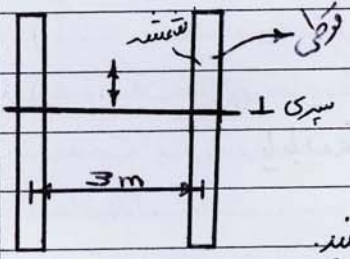 شمشه
قوطی
سپری ⊥
3 m